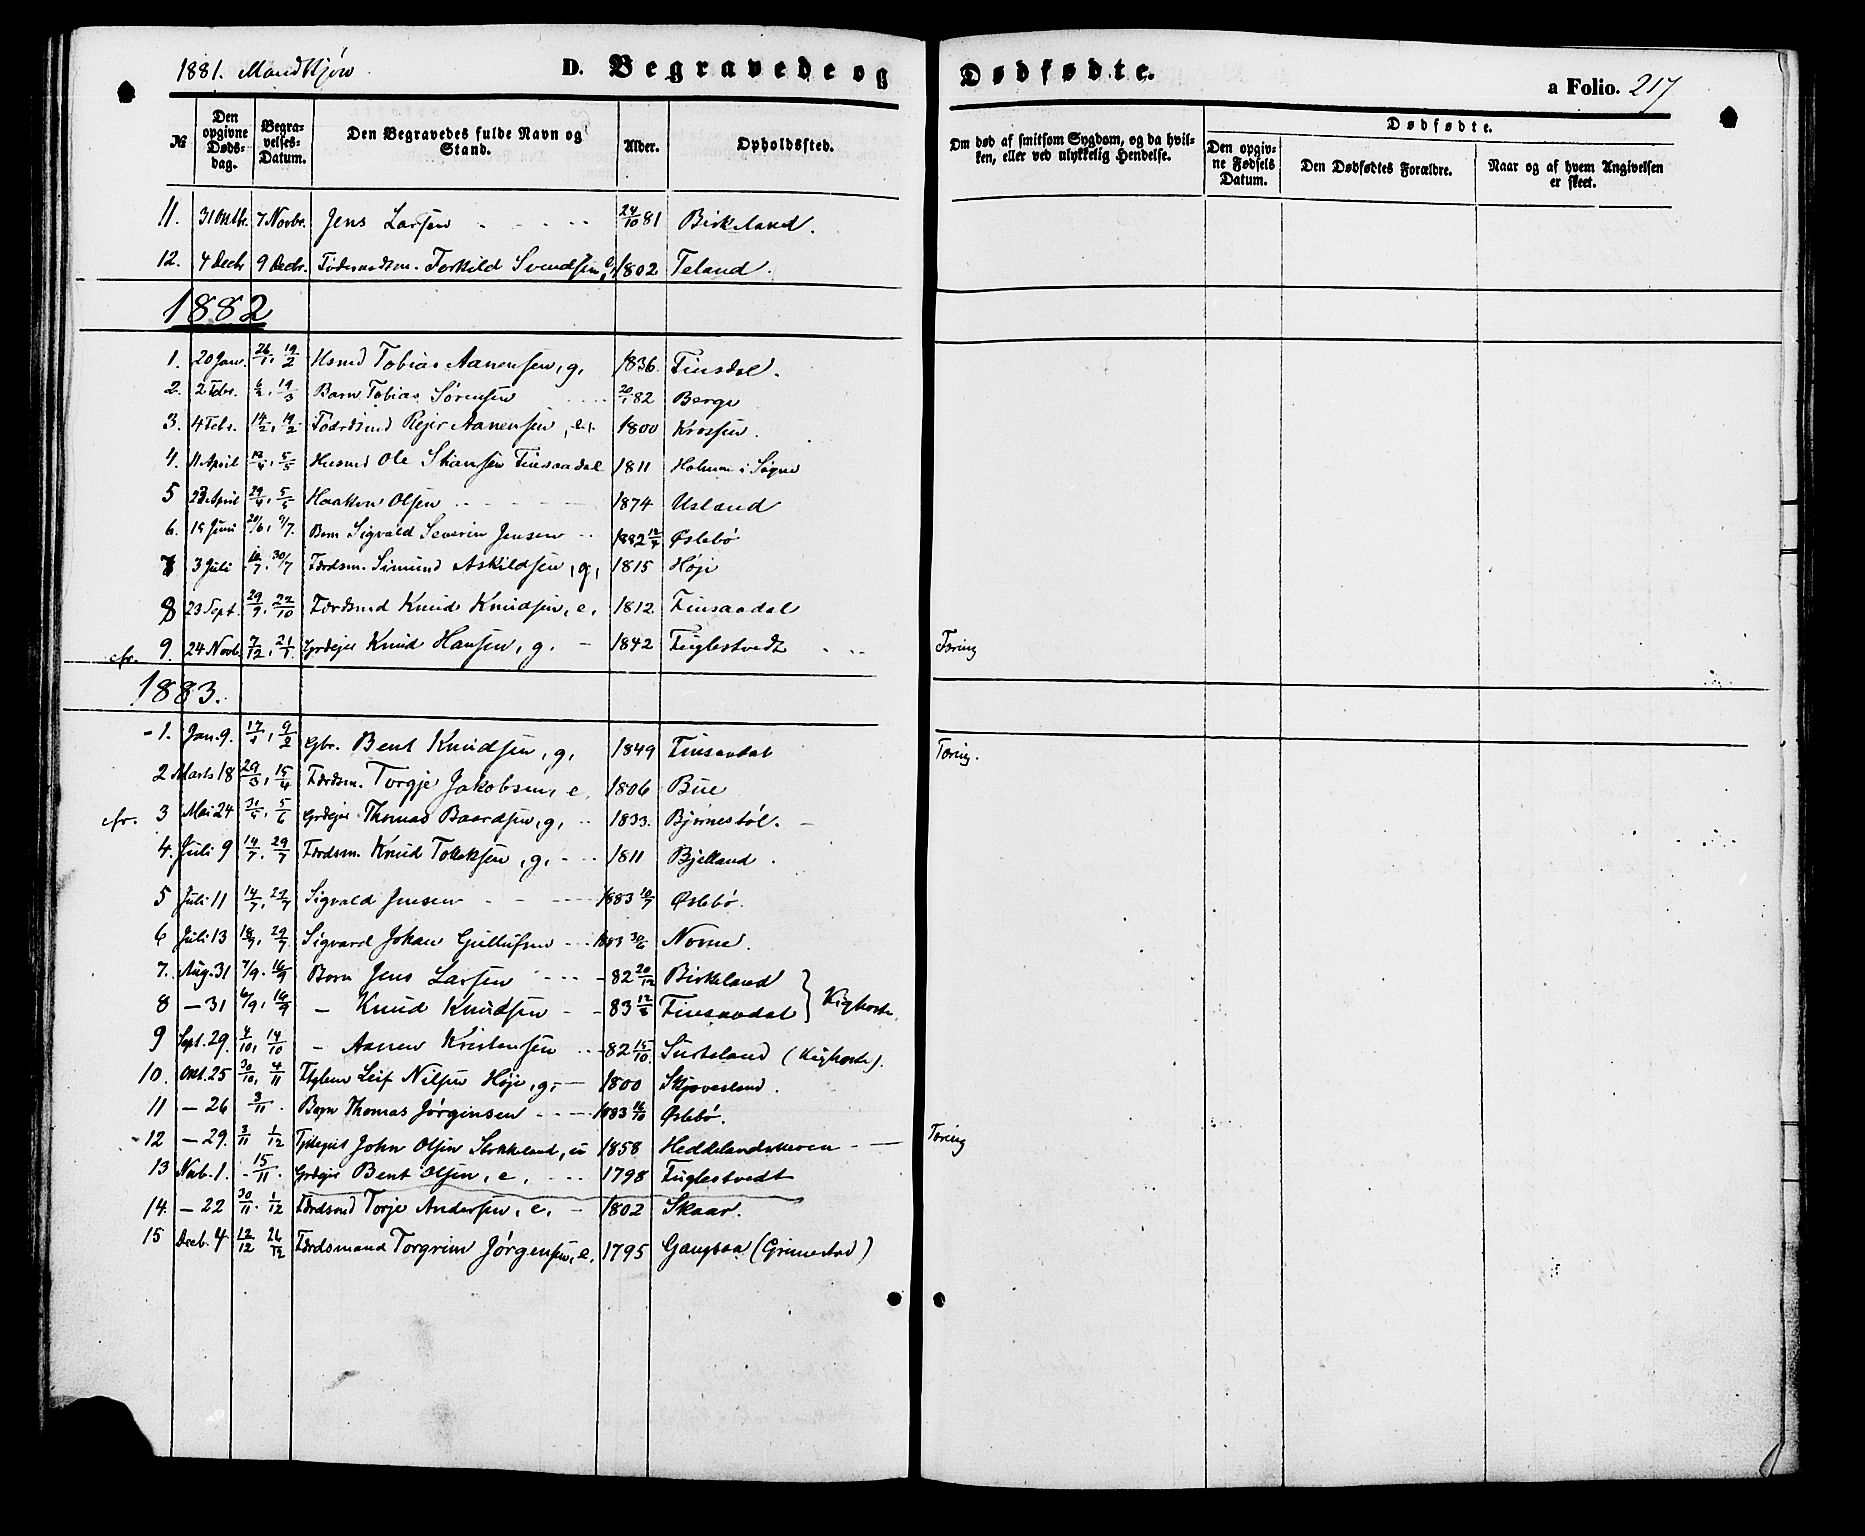 1881. Mandkjøn D. Begravede og Dødfødte. a Folio. 217
№ Den opgivne Døds-dag. Begra-velses-Datum. Den Begravedes fulde Navn og Stand. Alder. Opholdssted. Om død af smitsom Sygdom, og da hvil-ken, eller ved ulykkelig Hendelse. Dødfødte. Den opgiv-ne Fødsels Datum. Den Dødfødtes Forældre. Naar og af hvem Angivelsen er skeet.
11. 31 Oktbr. 7 Novbr. Jens Larsen 24/10 81 Birkeland.
12. 4 Decbr 9 Decbr. Terkild Svendsen 1802 Teland.
1882
1. 20 Jan. 26/1, 19/2 Hsmd Tobias Aanensen, g, 1836. Finsdal.
2. 2 Febr. 6/2, 19/3 Barn Tobias Sørensen 20/1 82 Berge
3. 4 Febr. 14/2, 19/2 Rejer Aanensen, e. 1800 Krossen.
4. 11 April 19/4, 5/5 Husmd Ole Finsaadal 1811 Holum i Søgne
5 23 April 29/4, 5/5 Haakon Olsen 1874 Usland
6. 15 Juni 20/6, 9/7. Barn Sigvald Severin Jensen 1882 Øslebø
7 3 Juli 10/7, 30/7 Førdsm. Simund Askildsen, g, 1815 Høje
8 23 Sept. 29/9, 22/10 Førdsmd Knud Knudsen, e, 1812 Finsaadal
cfr. 9. 24 Novb. 7/12, 21/1. Grdejer Knud Hansen, g. 1842 Fuglestvedt Tæring
1883.
1. Jan. 9. 17/1, 9/2 Gbr. Bent Knudsen, g, 1849 Finsaadal Tæring.
2 Marts 18 29/3, 15/4 Førdsm. Torgje Jakobsen, e, 1806 Bue
cfr. 3 Mai 24 31/5, 5/6 Grdejer Thomas Baardsen, g, 1833. Bjørnestøl.
4. Juli 9 14/7, 29/7 Førdsm. Knud Tolleksen, g, 1811 Bjelland.
5 Juli 11 14/7, 29/7 Sigvald Jensen 1883 10/7 Øslebø.
6 Juli 13 18/7, 29/7 Sigvard Johan Gullufsen 1883 30/6 Nome.
7. Aug. 31 7/9, 16/9 Barn Jens Larsen 82 20/12 Birkeland
8 — 31 6/9, 16/9 — Knud Knudsen 83 Finsaadal } Kighoste.
9 Sept. 29. 4/10, 14/10 — Aanen Kristensen 82 15/10. (Kighoste).
10. Okt. 25 30/10, 4/11 Leif Nilsen Høje, g, 1800 Skjævesland.
11 — 26 3/11. Barn Thomas Jørginsen 1883 16/10 Øslebø.
12 — 29. 3/11 1/12 John Olsen Stokkeland, u 1858 Heddelandsheren Tæring
13 Novb. 1. 15/11. Grdejer Bent Olsen, e. 1798 Fuglestvedt
14. — 22 30/11. 1/12 Førdsmd Torje Andersen, e. 1802 Skaar.
15 Decb. 4 12/12 26/12 Førdsmand Torgrim Jørgensen, e, 1795 Gangsaa (Grimestad)